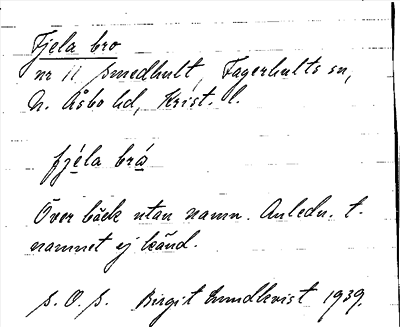 Fjela bro
nr 11 Smedhult, Fagerhults sn,
N. Åsbo hd, Krist. l.
fjéla brá
Över bäck utan namn. Anledn. t.
namnet ej känd.
S. O. S. Birgit Lundkvist 1939.